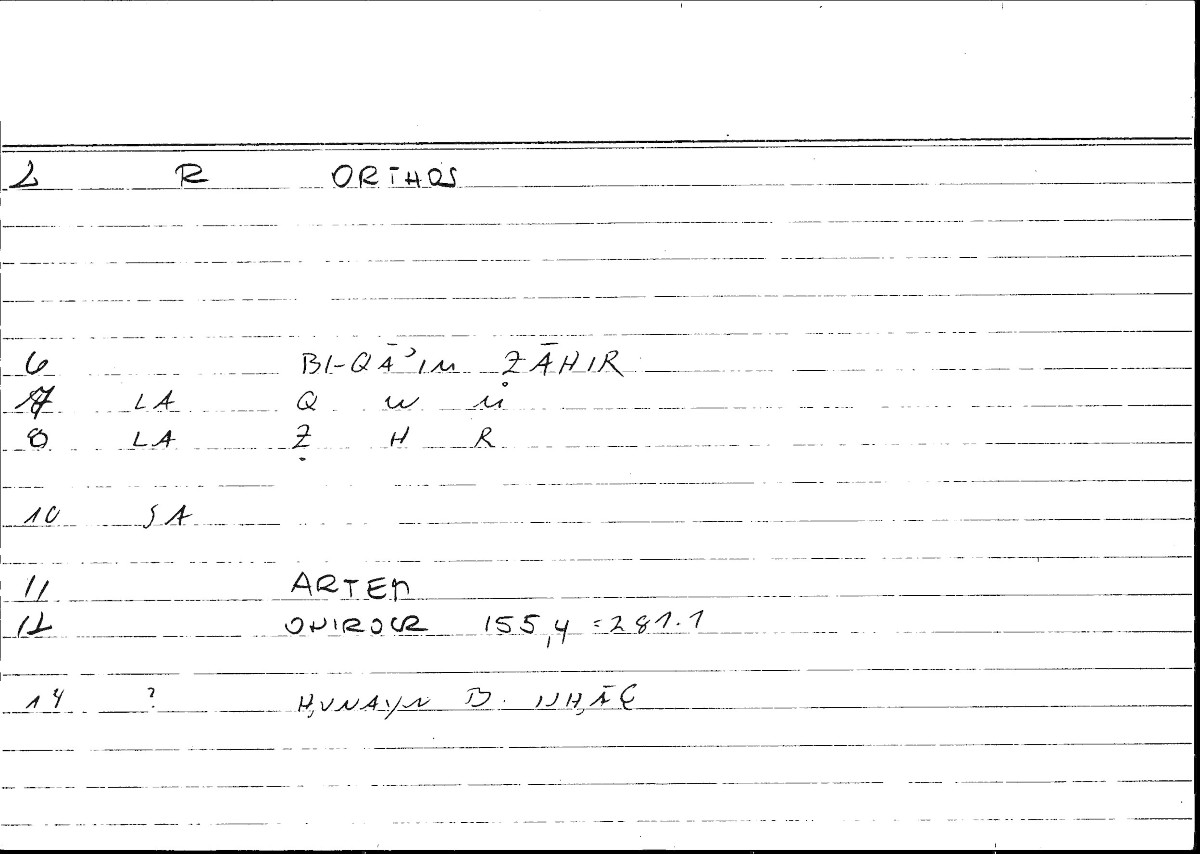 2 R ORTHOS
6 BI-QĀʾIM ẒĀHIR
7 LA Q W M
8 LA Ẓ H R
10 SA
11 ARTEM
12 ONIROCR 155,4 = 281.1
14 ? ḤUNAYN B. ISḤĀQ